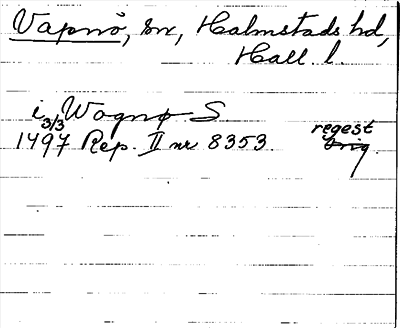 Vapnö, sn, Halmstads hd,
Hall. l.
i Wognø S.
3/3
1497 Rep. II nr 8353. regest
Orig.